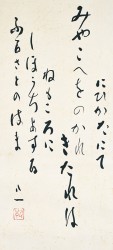 にひかたにて
みやこへをのかれ
きたれは
ねもころに
しほうちよする
ふるさとのはま
八一